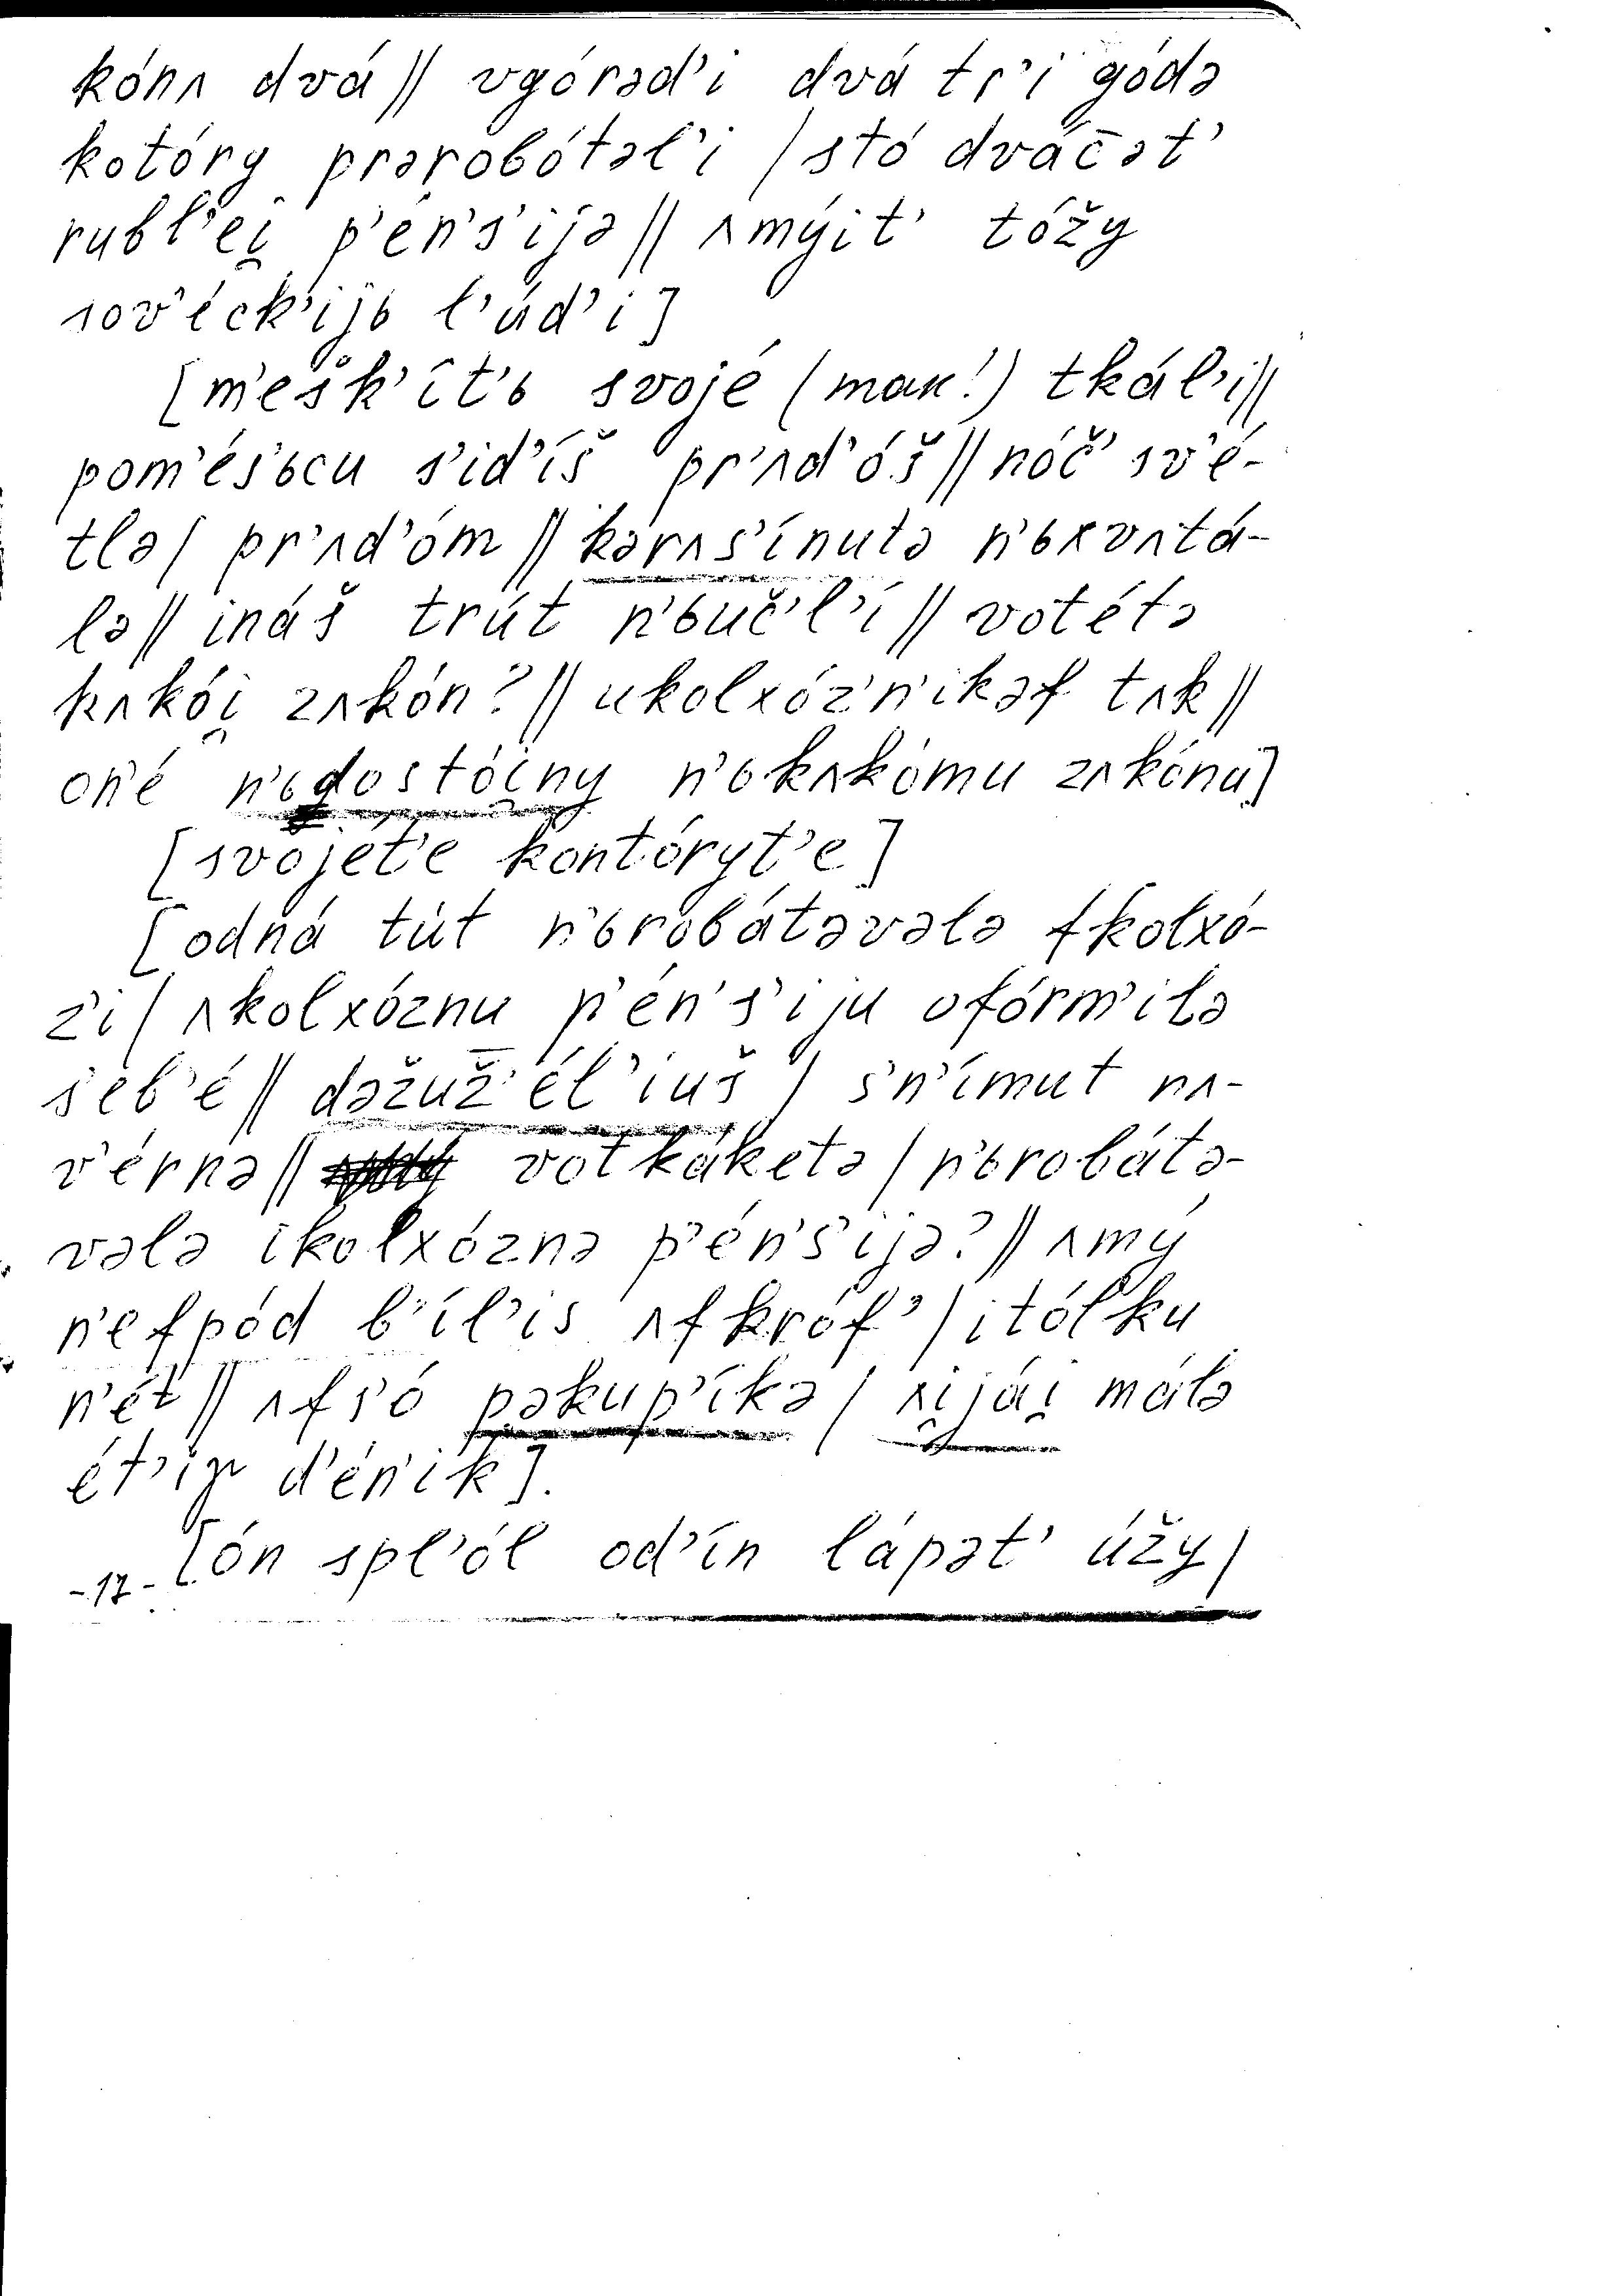 kónʌ dvá // vgórəd’i dvá tr’i gódə
kotóry prərobótəl’i / stó dvác̄ət’
rubl’ei̯ p’én’s’ijə // ʌmýit’ tóžy
sov’éck’ijь l’úd’i]
[m’ešk’ít’ь svojé (так!) tkál’i //
pom’és’ьcu s’id’íš pr’ʌd’óš // nóč’ sv’é-
tlə / pr’ʌd’óm // kərʌs’ínutə n’ьxvʌtá-
lə // ináš trút n’ьuč’l’í // votétə
kʌkói̯ zʌkón? // ukolxóz’n’ikəf tʌk //
on’é n’ьdostói̯ny n’ьkʌkómu zʌkónu]
[svojét’e kontóryt’e]
[odná tút n’ьrobátəvələ fkolxó-
z’i / ʌkolxóznu p’én’s’iju ofórm’ilə
s’eb’é // dəžuž’él’iuš / s’n’ímut nʌ-
v’érnə // votkáketə / n’ьrobátə-
vələ ikolxóznə p’én’s’ijə? // ʌmý
n’efpód b’íl’is ʌfkróf’ / itól’ku
n’ét // ʌfs’ó pəkup’íkə / xijái̯ málə
ét’ix d’én’ik].
[ón spl’ól od’ín lápət’ úžy /
-17-